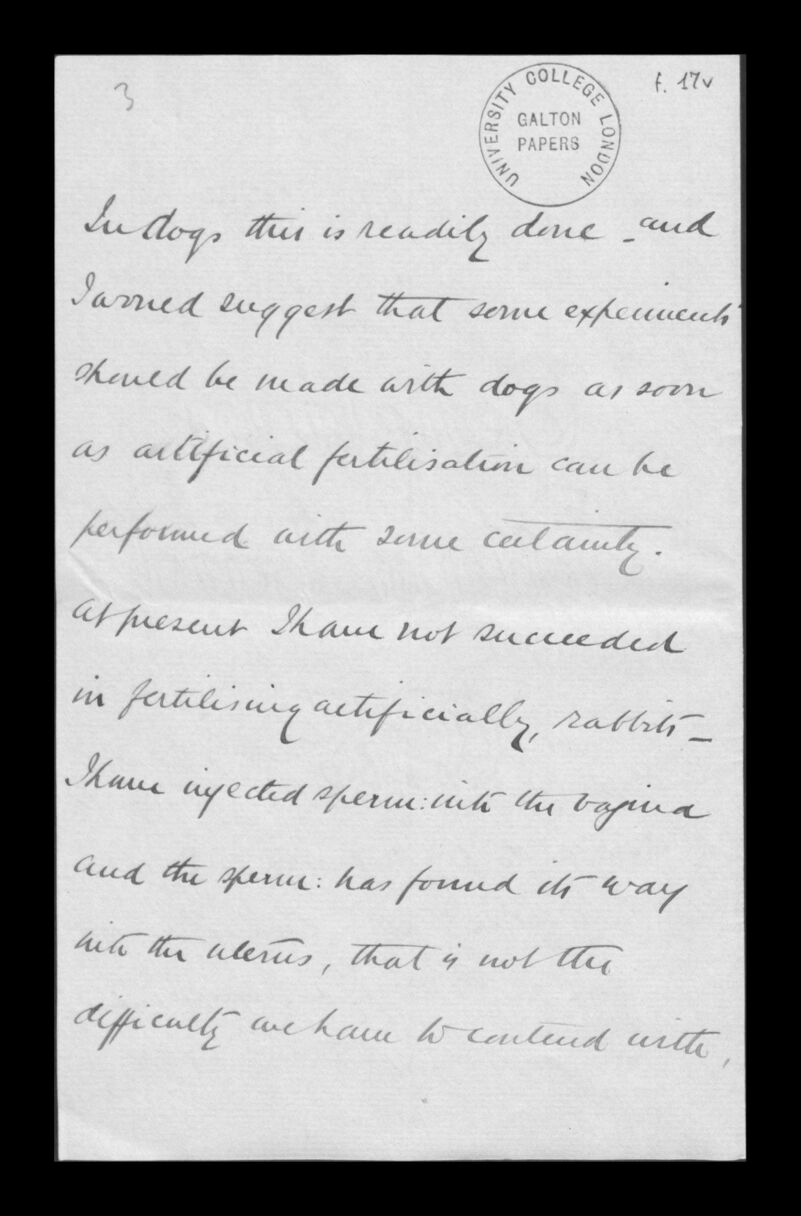 3
f. 17v
UNIVERSITY COLLEGE LONDON
GALTON
PAPERS
In dogs this is readily done - and
I would suggest that some experiments
should be made with dogs as soon
as artificial fertilisation can be
performed with some certainty.
at present I have not succeeded
in fertilising artificially, rabbits -
I have injected sperm: into the vagina
and the sperm: has found its way
into the uterus, that is not the
difficulty we have to contend with,